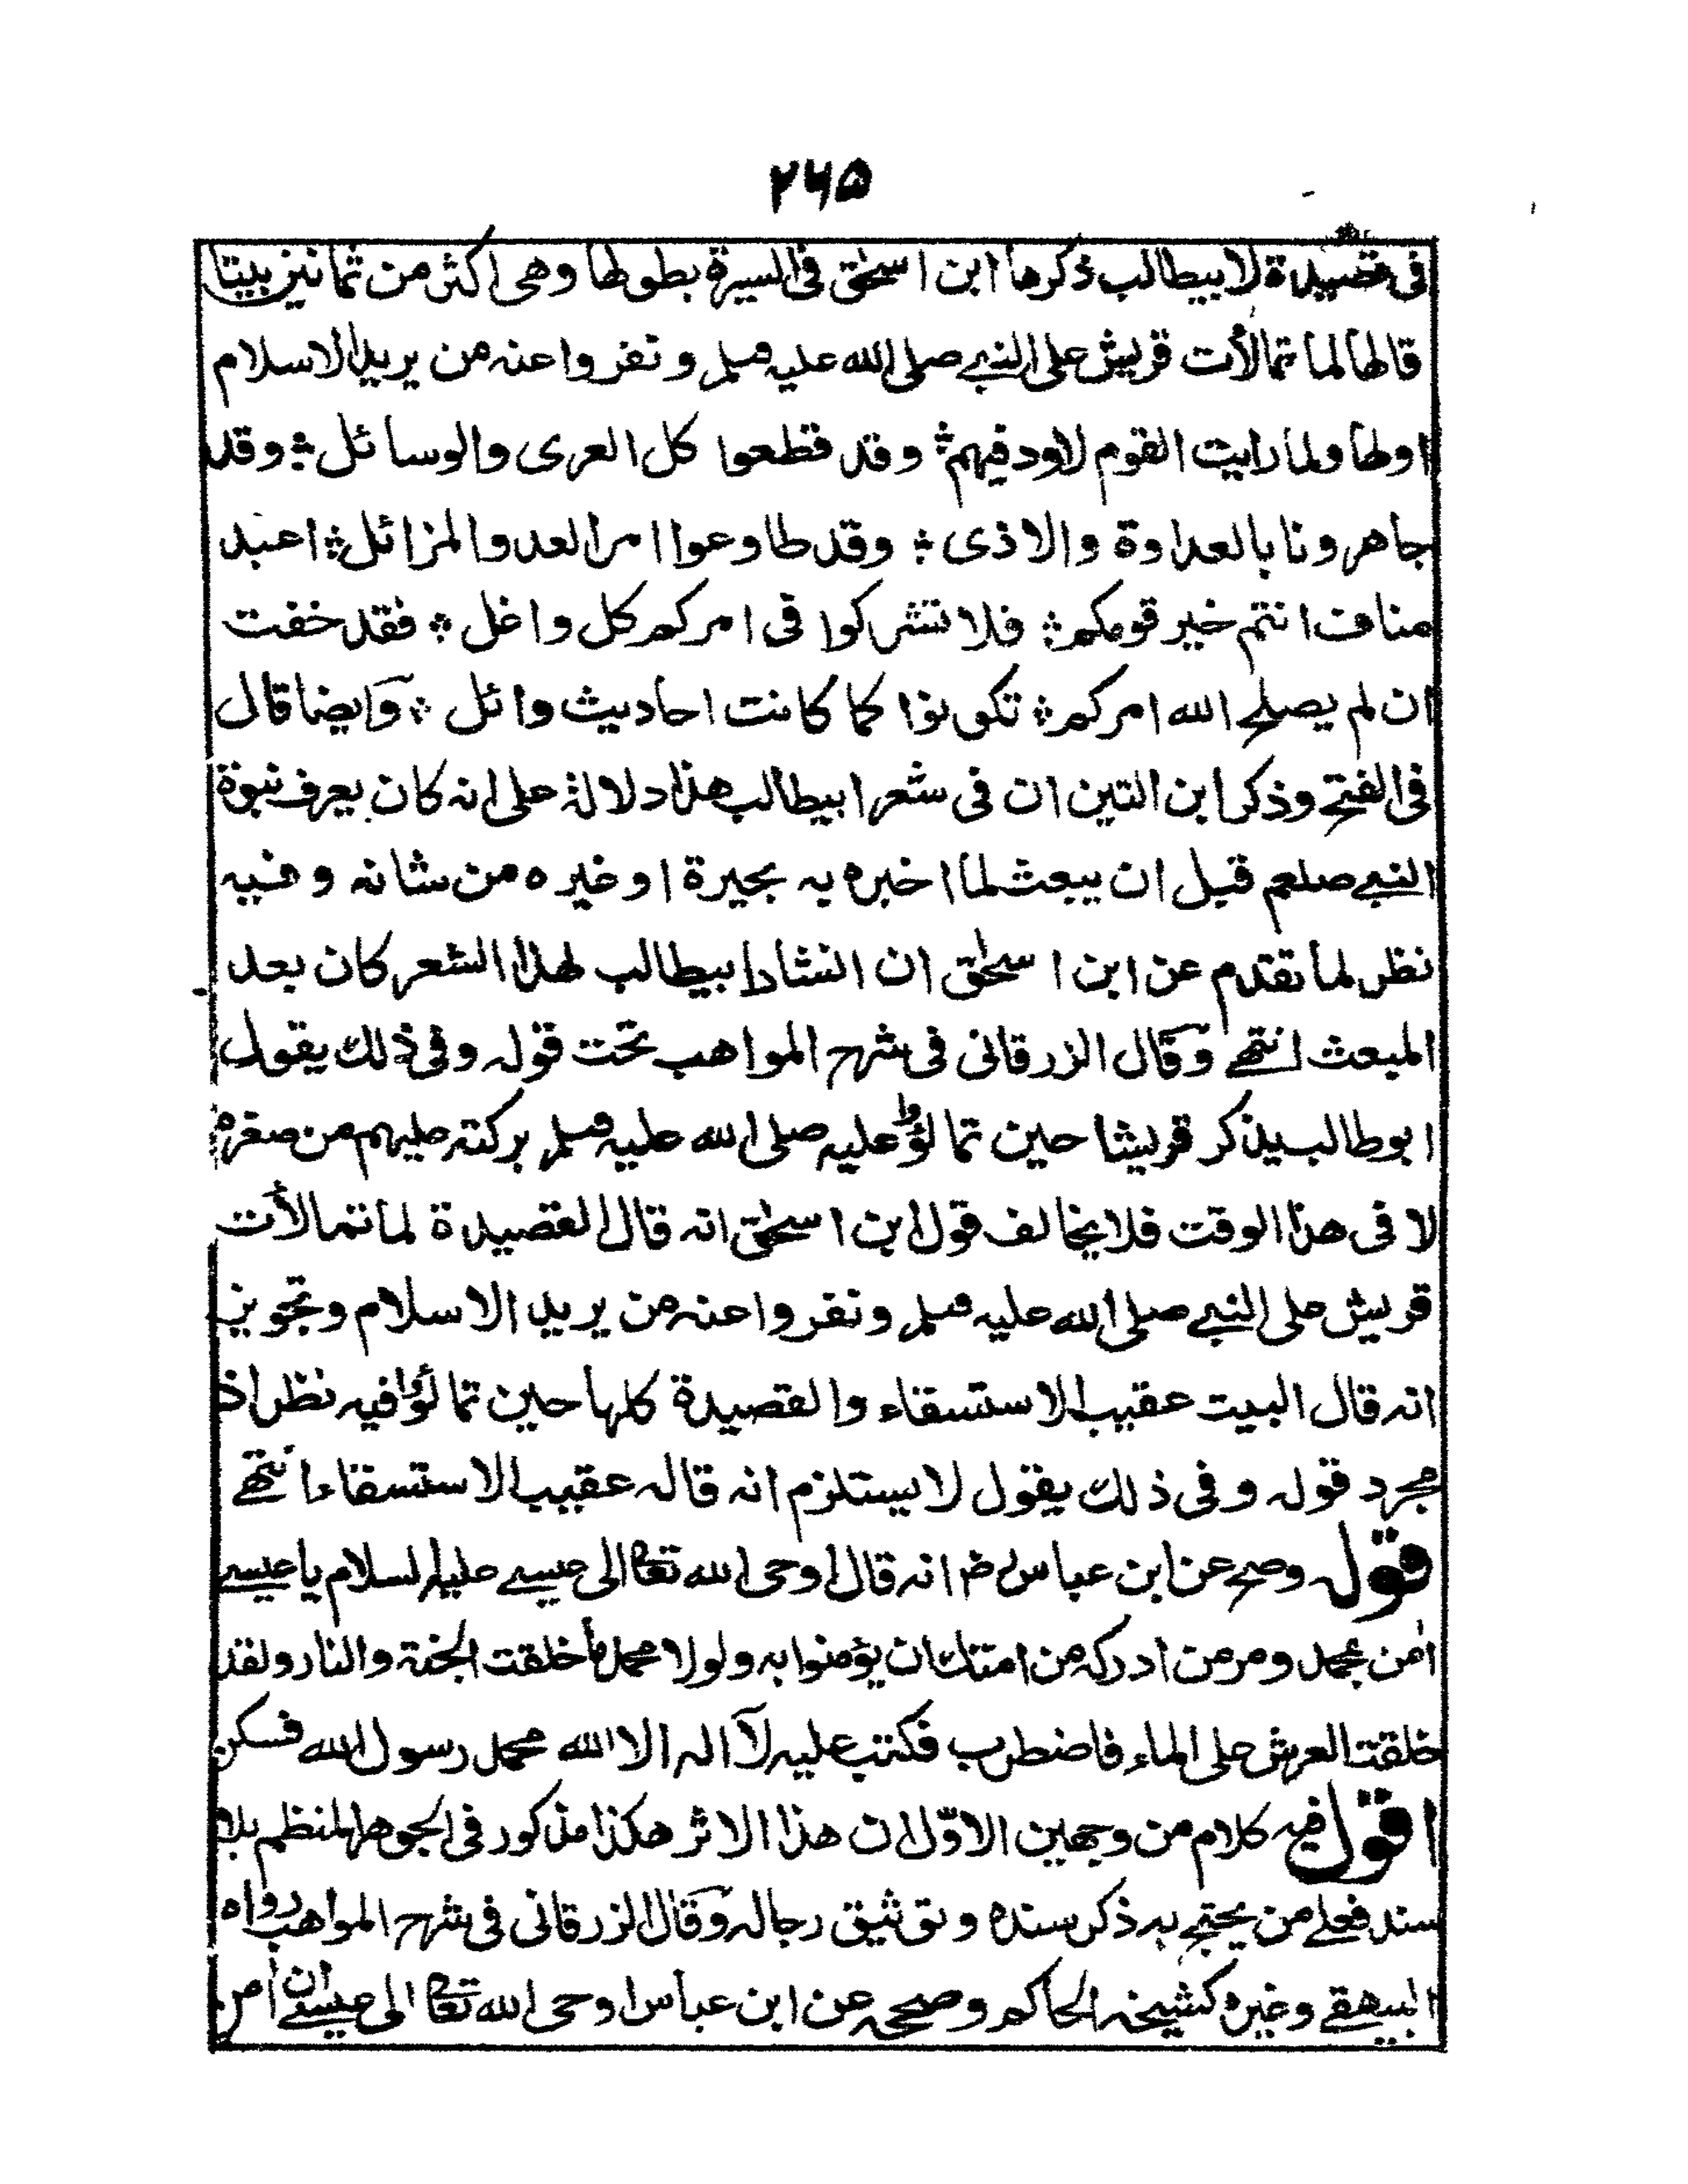 ۲۶۵
فی قصیدة لابیطالب ذکرها ابن اسحٰق فی السیرة بطولها وهی اکثر من ثمانین بیتا
قالها لما تمالأت قریش علی النبی صلی الله علیه وسلم ونفروا عنه من یرید الاسلام
اولها ولما رایت القوم لاود فیهم؞ وقد قطعوا کل العری والوسائل؞ وقد
جاهرونا بالعداوة والاذی؞ وقد طاوعوا امر العدو المزائل؞ اعبد
مناف انتم خیر قومکم؞ فلا تشرکوا فی امرکم کل واغل؞ فقد خفت
ان لم یصلح الله امرکم؞ تکونوا کما کانت احادیث وائل؞ وایضا قال
فی الفتح وذکر ابن التین ان فی شعر ابیطالب هذا دلالة علی انه کان یعرف نبوة
النبی صلعم قبل ان یبعث لما اخبره به بحیرة او غیره من شانه وفیه
نظر لما تقدم عن ابن اسحٰق ان انشاد ابیطالب لهذا الشعر کان بعد
المبعث انتهی وقال الزرقانی فی شرح المواهب تحت قوله وفی ذلک یقول
ابوطالب یذکر قریشا حین تمالؤا علیه صلی الله علیه وسلم برکته علیهم من صغره
لا فی هذا الوقت فلا یخالف قول ابن اسحٰق انه قال القصیدة لما تمالأت
قریش علی النبی صلی الله علیه وسلم ونفروا عنه من یرید الاسلام وتجویز
انه قال البیت عقیب الاستسقاء والقصیدة کلها حین تمالؤا فیه نظر اذ
مجرد قوله وفی ذلک یقول لا یستلزم انه قاله عقیب الاستسقاء انتهی
قوله وصح عن ابن عباس رض انه قال اوحی الله تعالی الی عیسی علیه السلام یا عیسی
اٰمن بمحمد ومر من ادرکه من امتک ان یؤمنوا به ولولا محمد ما خلقت الجنة والنار ولقد
خلقت العرش علی الماء فاضطرب فکتبت علیه لآ اله الا الله محمد رسول الله فسکن
اقول فیه کلام من وجهین الاوّل ان هذا الاثر هکذا مذکور فی الجوهر المنظم بلا
سند فعلی من یحتج به ذکر سنده وتوثیق رجاله وقال الزرقانی فی شرح المواهب رواه
البیهقی وغیره کشیخه الحاکم وصححه عن ابن عباس اوحی الله تعالی الی عیسی ان اٰمن